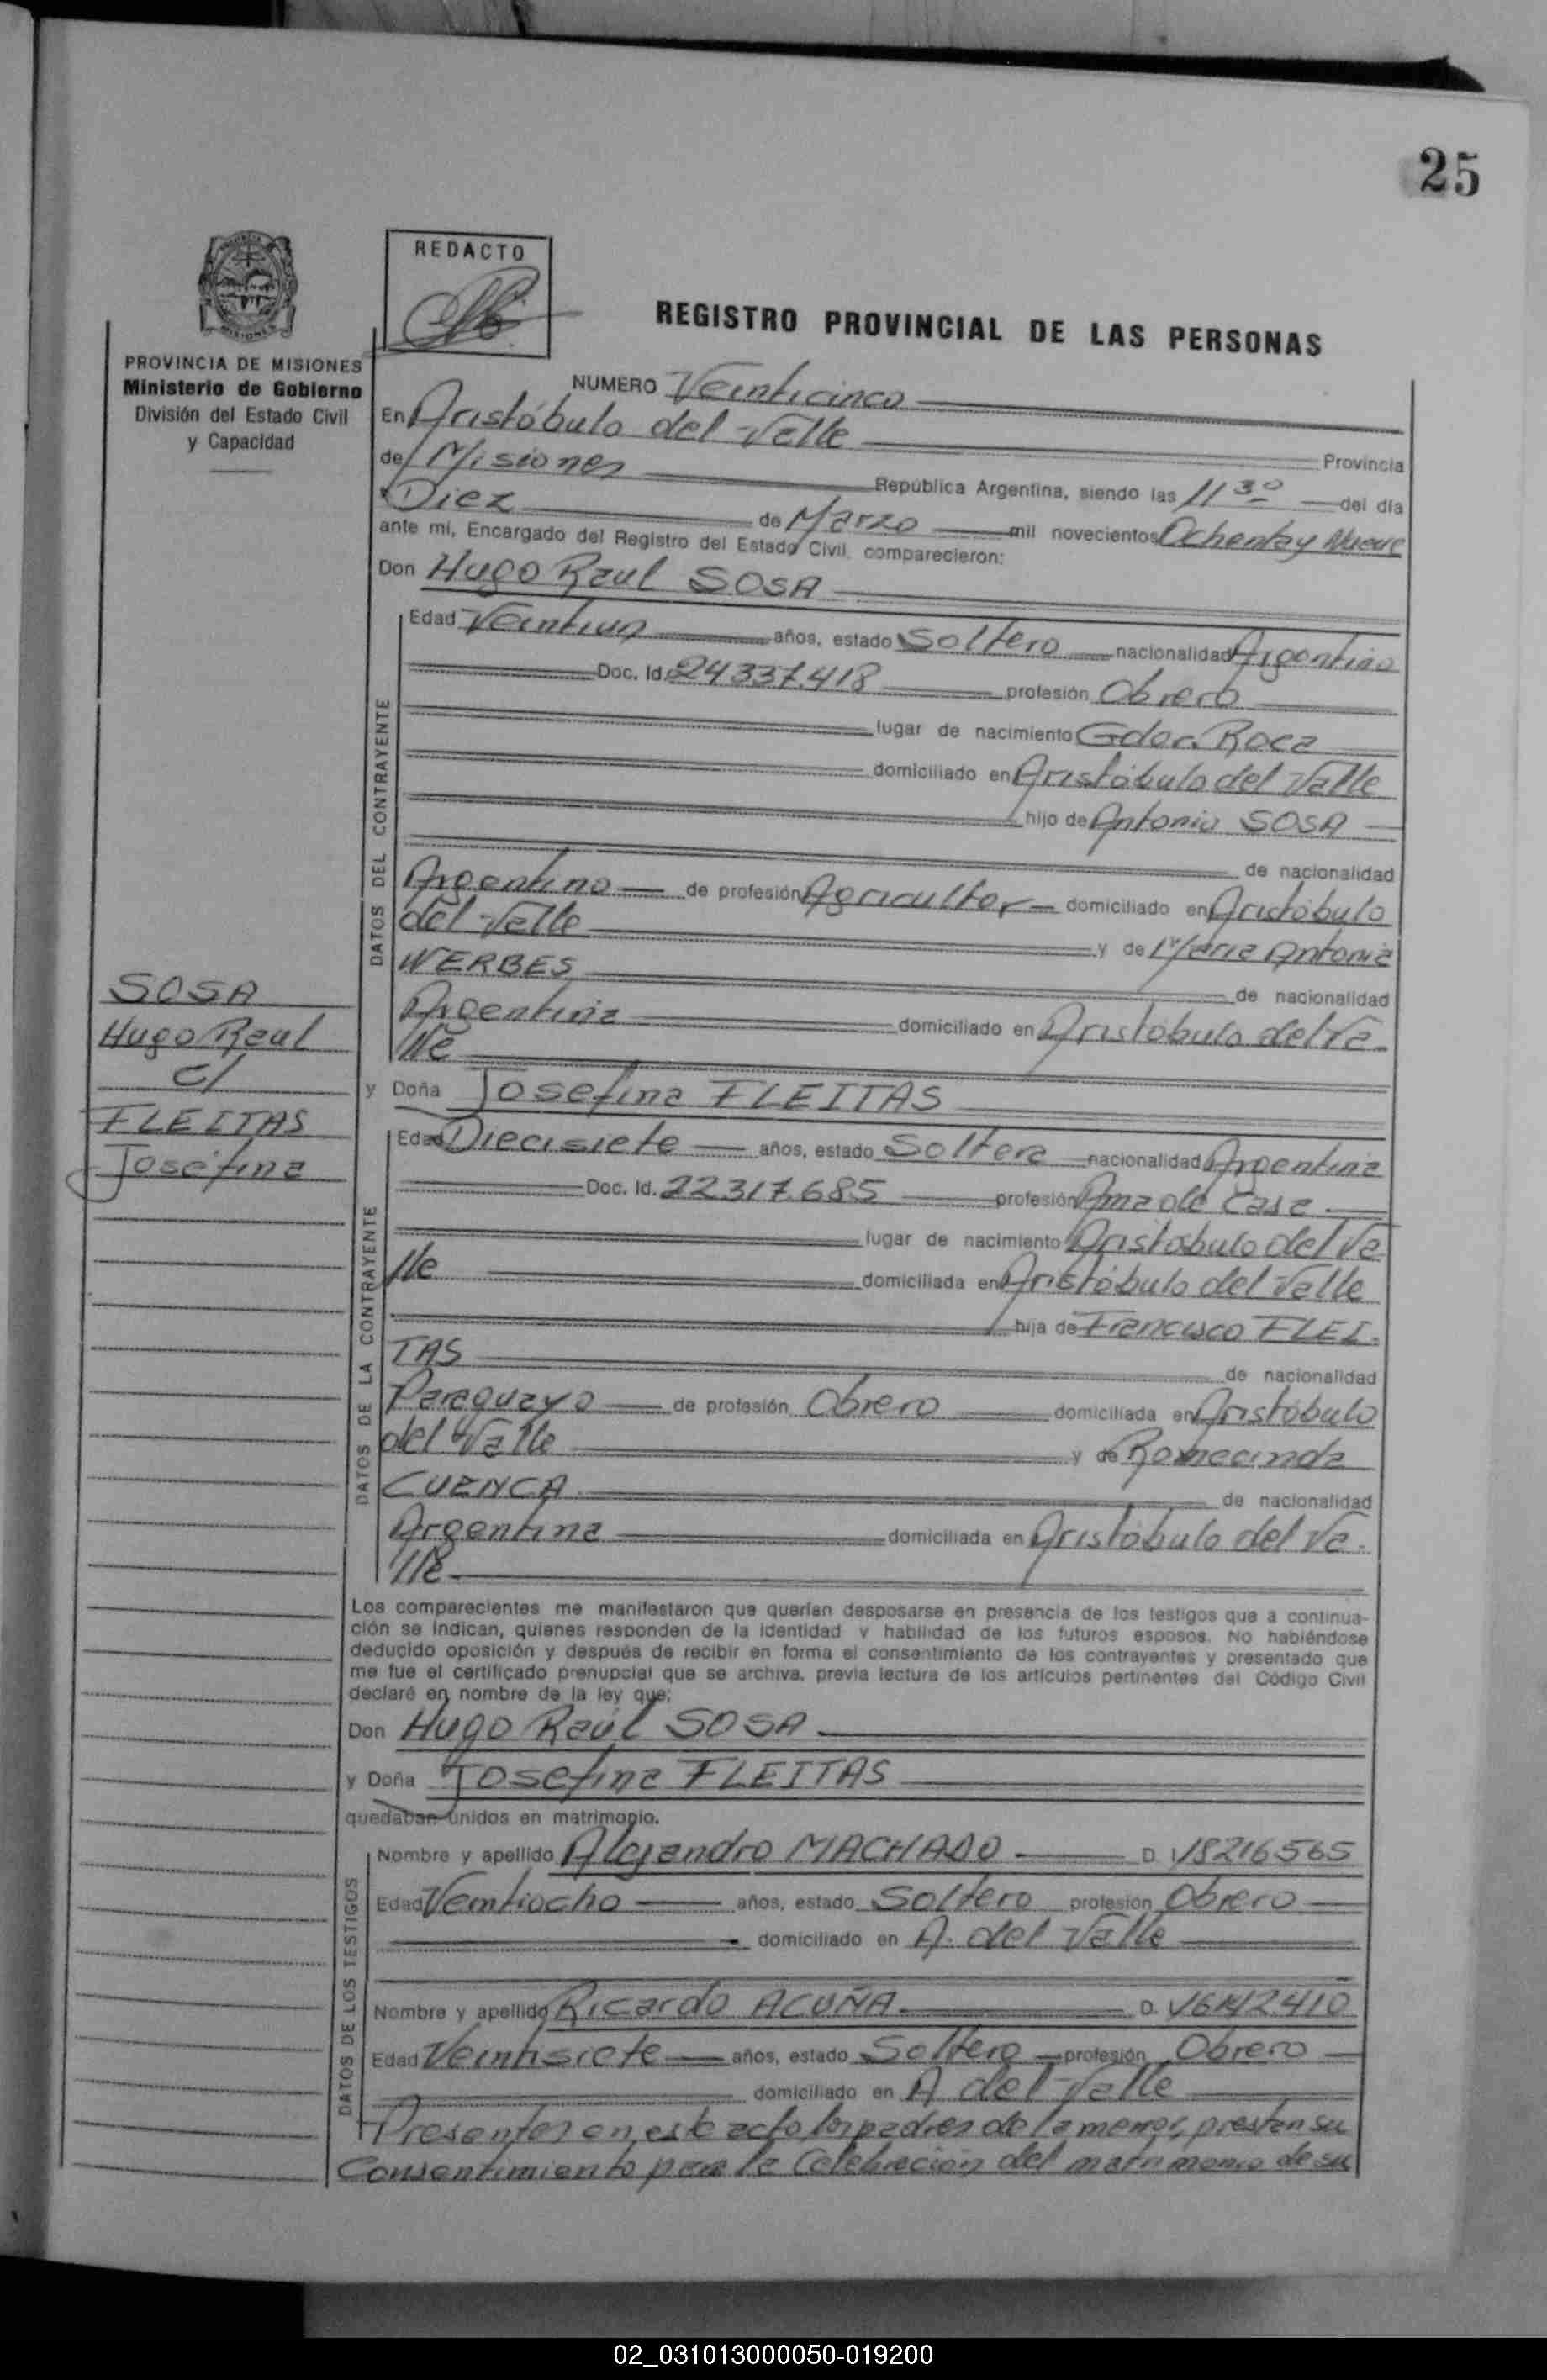 25
REDACTO
REGISTRO PROVINCIAL DE LAS PERSONAS
PROVINCIA DE MISIONES
Ministerio de Gobierno
División del Estado Civil
y Capacidad
NUMERO Veinticinco
En Aristóbulo del Valle
Provincia
de Misiones República Argentina, siendo las 11 30 del día
Diez de Marzo mil novecientos Ochenta y Nueve
ante mi, Encargado del Registro del Estado Civil, comparecieron:
Don Hugo Raul SOSA
DATOS DEL CONTRAYENTE
Edad Veintiun años, estado Soltero nacionalidad Argentino
Doc. Id. 24337.418 profesión Obrero
lugar de nacimiento Gdor. Roca
domiciliado en Aristóbulo del Valle
hijo de Antonio SOSA
de nacionalidad
Argentino de profesión Agricultor domiciliado en Aristóbulo
del Valle y de Maria Antonia
WERBES de nacionalidad
Argentina domiciliado en Aristóbulo del Va
lle
SOSA
Hugo Raul
c/
FLEITAS
Josefina
y Doña Josefina FLEITAS
DATOS DE LA CONTRAYENTE
Edad Diecisiete años, estado Soltera nacionalidad Argentina
Doc. Id. 22317.685 profesión Ama de Casa
lugar de nacimiento Aristobulo del Va
lle domiciliada en Aristóbulo del Valle
hija de Francisco FLEI
TAS de nacionalidad
Paraguayo de profesión Obrero domiciliada en Aristóbulo
del Valle y de
CUENCA de nacionalidad
Argentina domiciliada en Aristóbulo del Va
lle
Los comparecientes me manifestaron que querían desposarse en presencia de los testigos que a continua-
ción se indican, quienes responden de la identidad y habilidad de los futuros esposos. No habiéndose
deducido oposición y después de recibir en forma el consentimiento de los contrayentes y presentado que
me fue el certificado prenupcial que se archiva, previa lectura de los artículos pertinentes del Código Civil
declaré en nombre de la ley que:
Don Hugo Raúl SOSA
y Doña Josefina FLEITAS
quedaban unidos en matrimonio.
DATOS DE LOS TESTIGOS
Nombre y apellido Alejandro MACHADO D. I. 18216565
Edad Veintiocho años, estado Soltero profesión Obrero
domiciliado en A. del Valle
Nombre y apellido Ricardo ACUÑA D.
Edad Veintisiete años, estado Soltero profesión Obrero
domiciliado en A del Valle
Presentes en este acto los padres de la menor, prestan su
Consentimiento para la Celebración del matrimonio de su
02_031013000050-019200